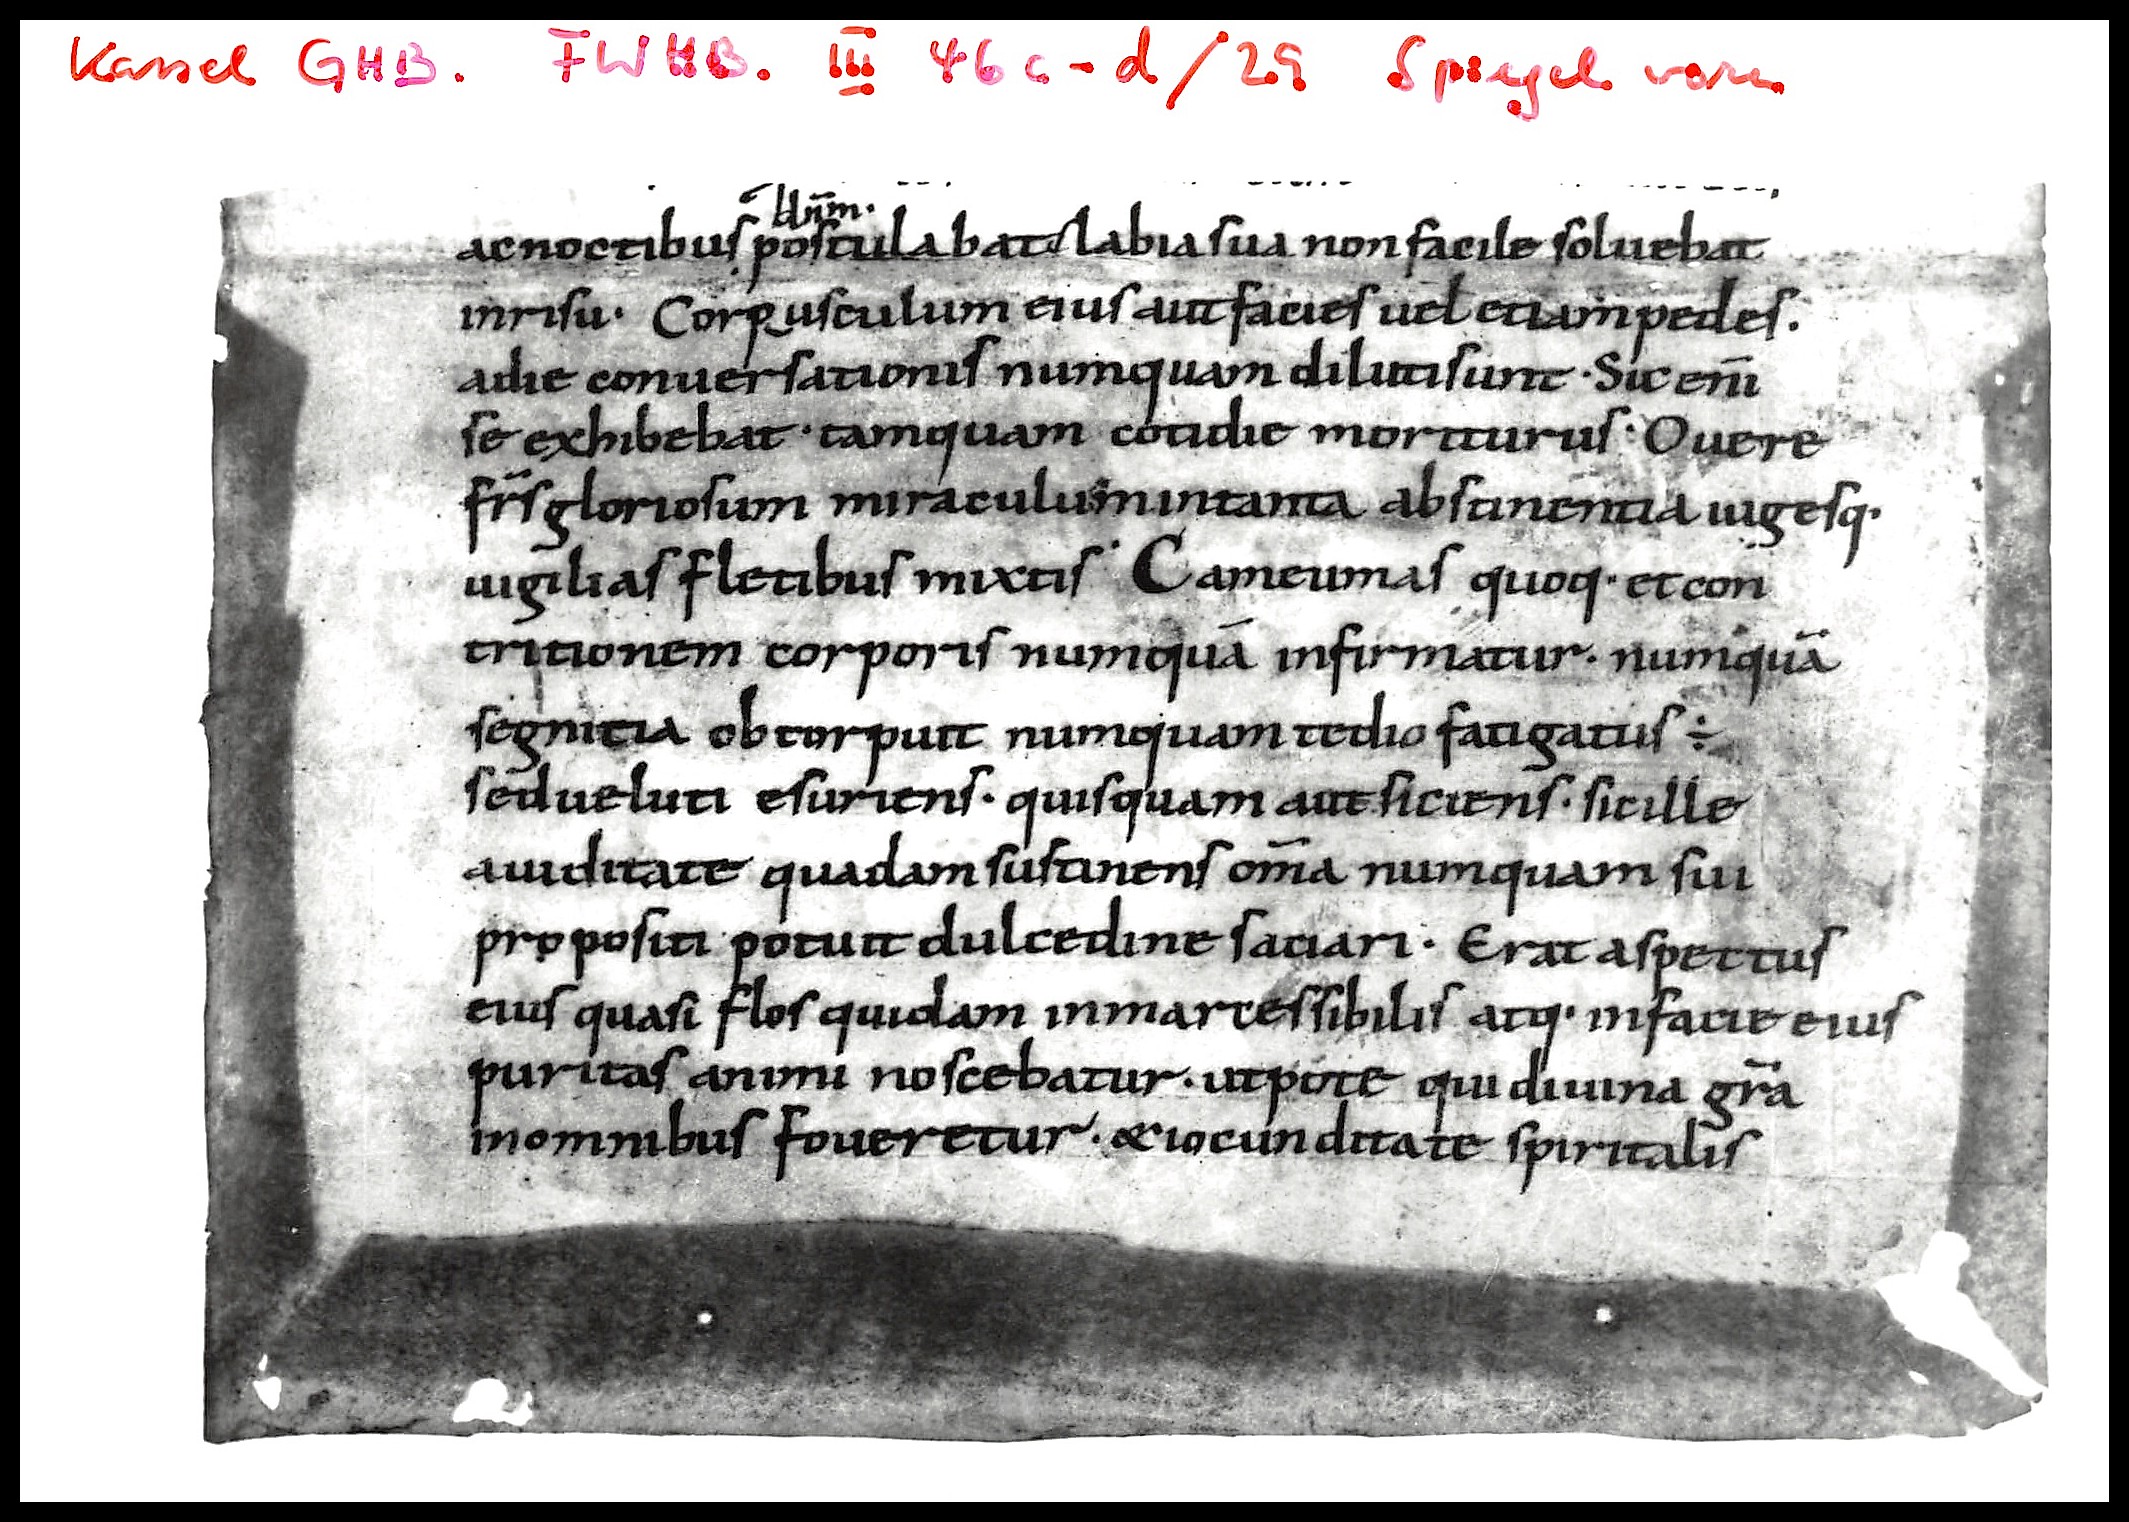 Kassel GHB. FWHB. III 46 c-d/29 Spiegel vorn
ac noctibus postulabat labia sua non facile soluebat
in risu· Corpusculum eius aut facies uel etiam pedes.
a die conuersationis numquam diluti sunt· Sic eni̅
se exhibebat· tamquam cotidie moriturus· O uere
fr̅s gloriosum miraculum in tanta abstinentia uigesq·
uigilias fletibus mixtis· Cameumas quoq· et con
tritionem corporis numquā infirmatur· numquā
segnitia obtorpuit numquam tedio fatigatus ÷
sed ueluti esuriens· quisquam aut siciens· sic ille
auiditate quadam sustinens om̅a numquam sui
propositi potuit dulcedine saciari· Erat aspectus
eius quasi flos quidam inmarcessibilis atq· in facie eius
puritas animi noscebatur· utpote qui diuina gr̅a
in omnibus foueretur· & iocunditate spiritalis